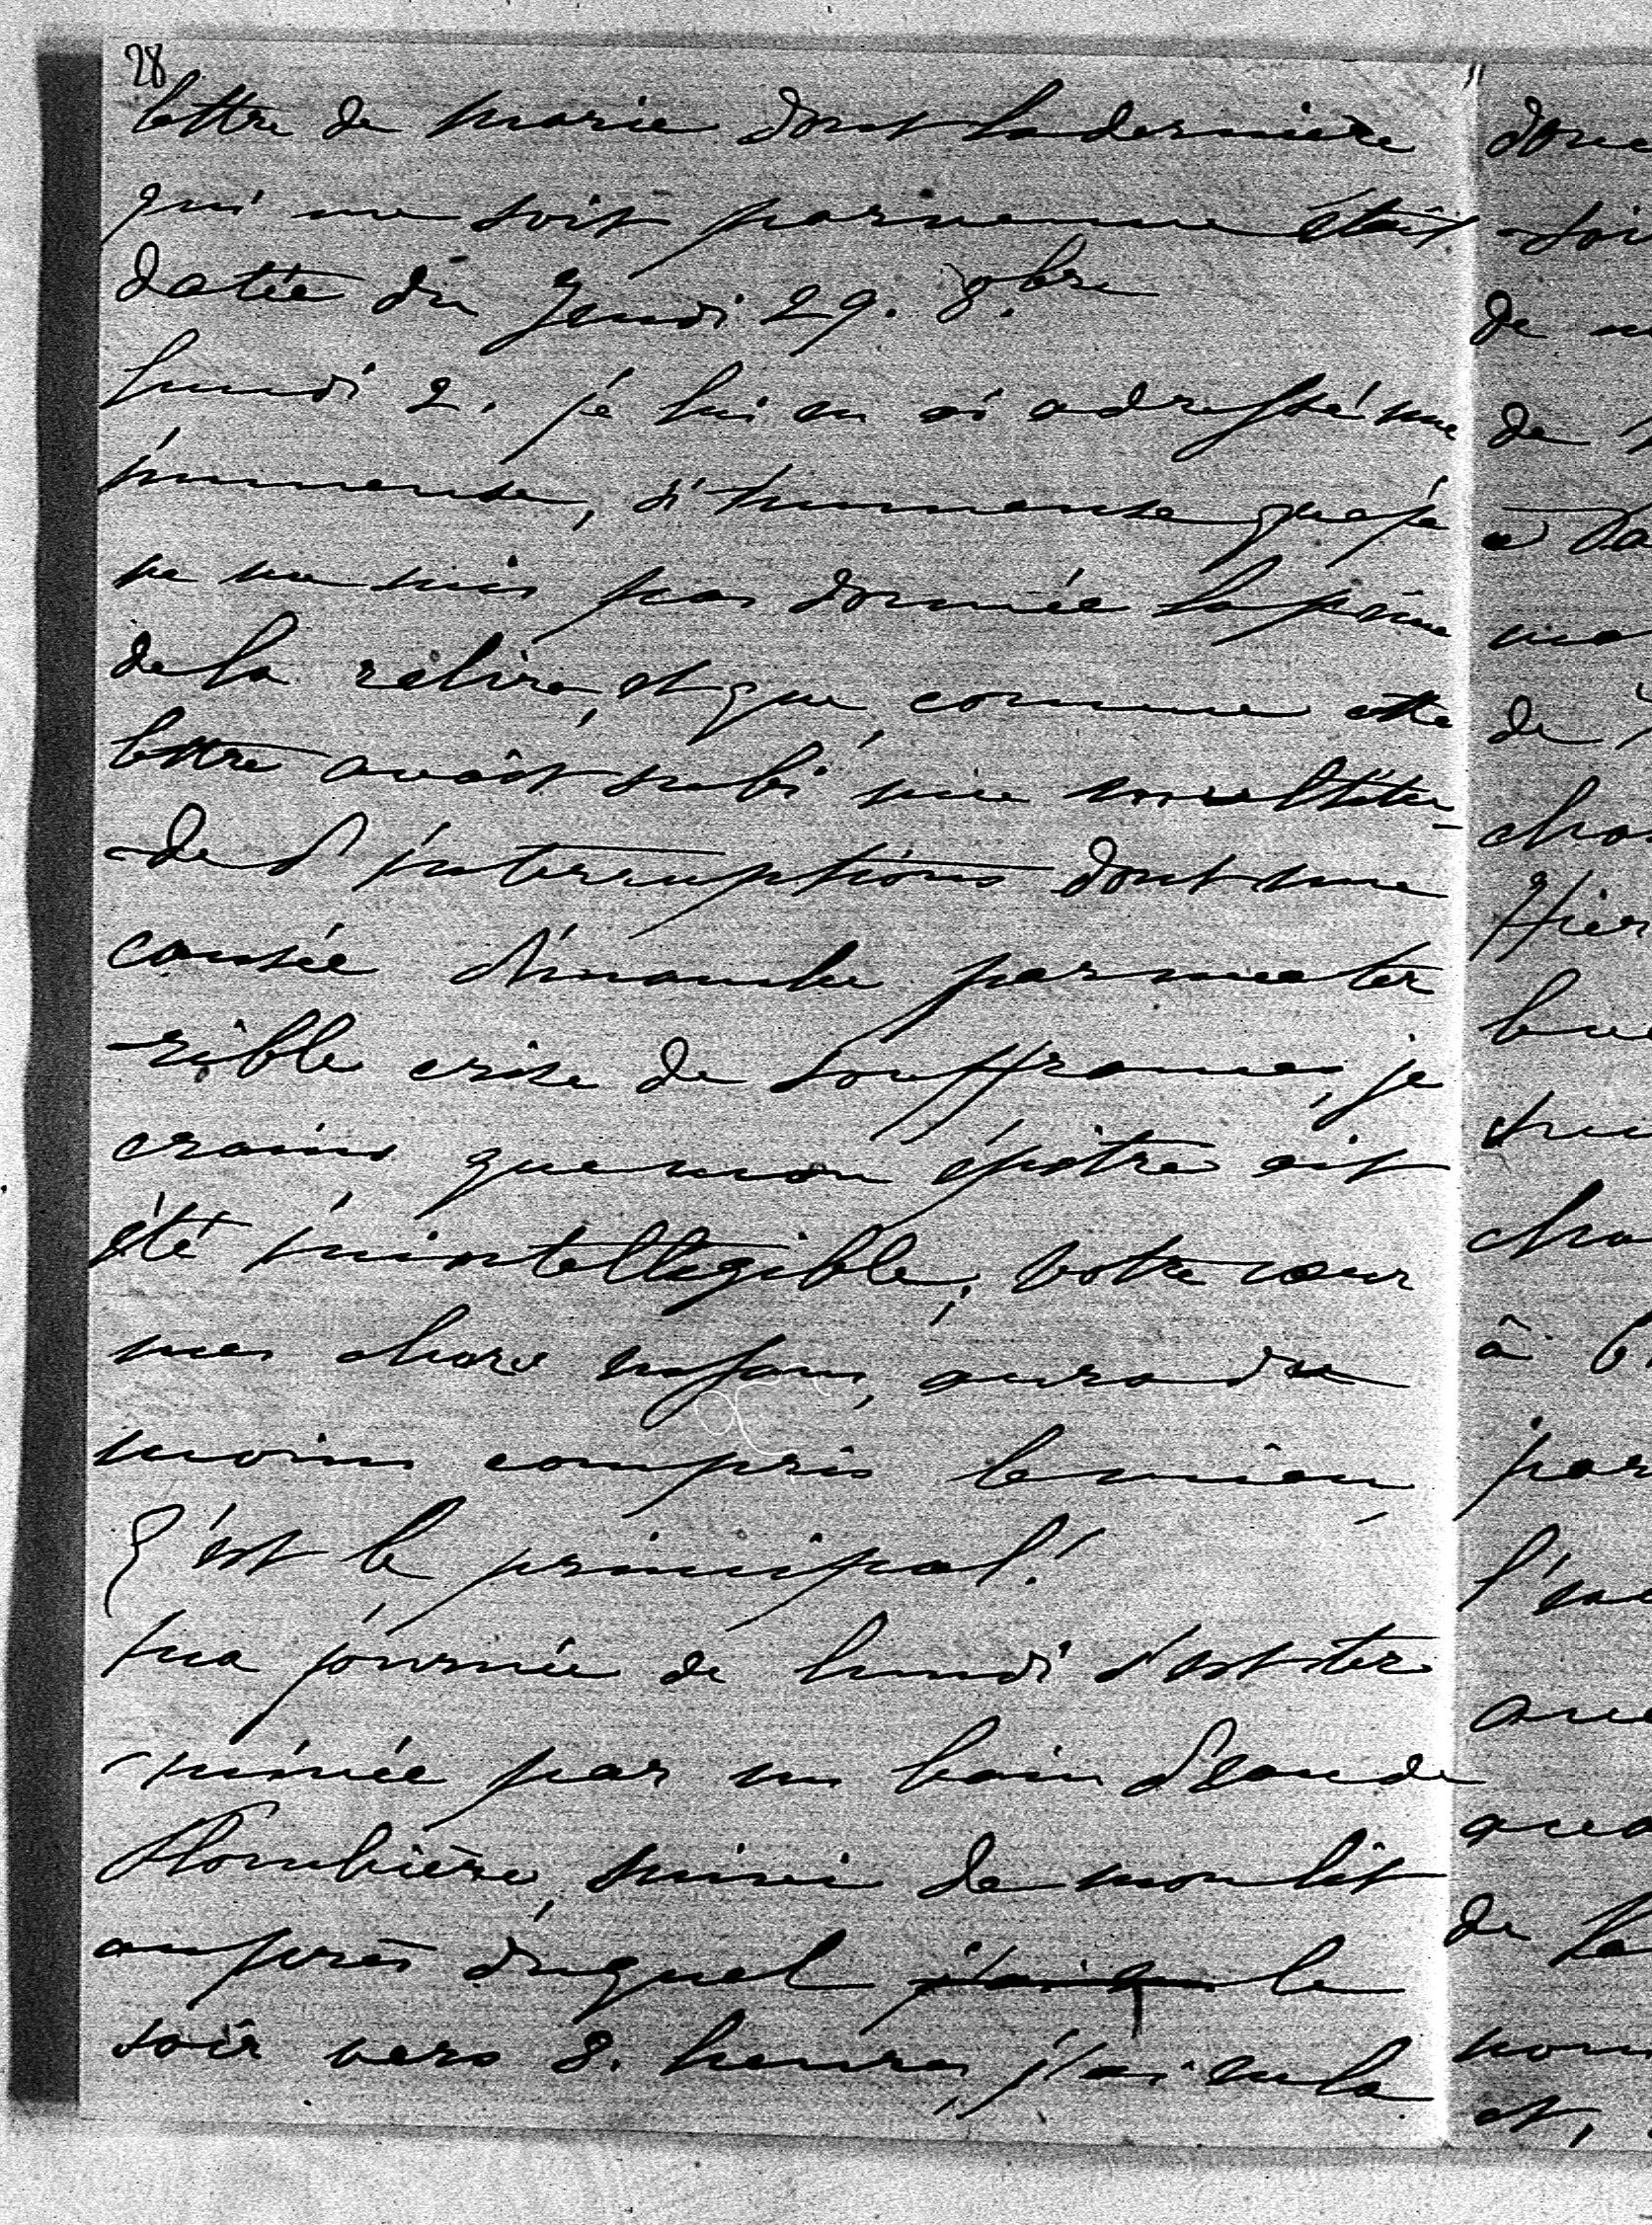 28
lettre de Marie dont la dernière
qui me soit parvenue était
datée du Jeudi 29. 8bre
Lundi 2. je lui en ai adressé une
immense, si immense que je
ne me suis pas donnée la peine
de la relire, et que, comme cette
lettre avait subi une multitu-
-de d'interruptions dont une
causée dimanche par une ter
-rible crise de souffrances, je
crains que mon épitre ait
été inintelligible; votre cœur
mes chers enfans, aura du
moins compris le mien
C'est le principal!
Ma journée de lundi s'est ter
-minée par un bain d'eau de
Plombière, suivi de mon lit
auprès duquel le
soir vers 8. heures, j'ai eu la